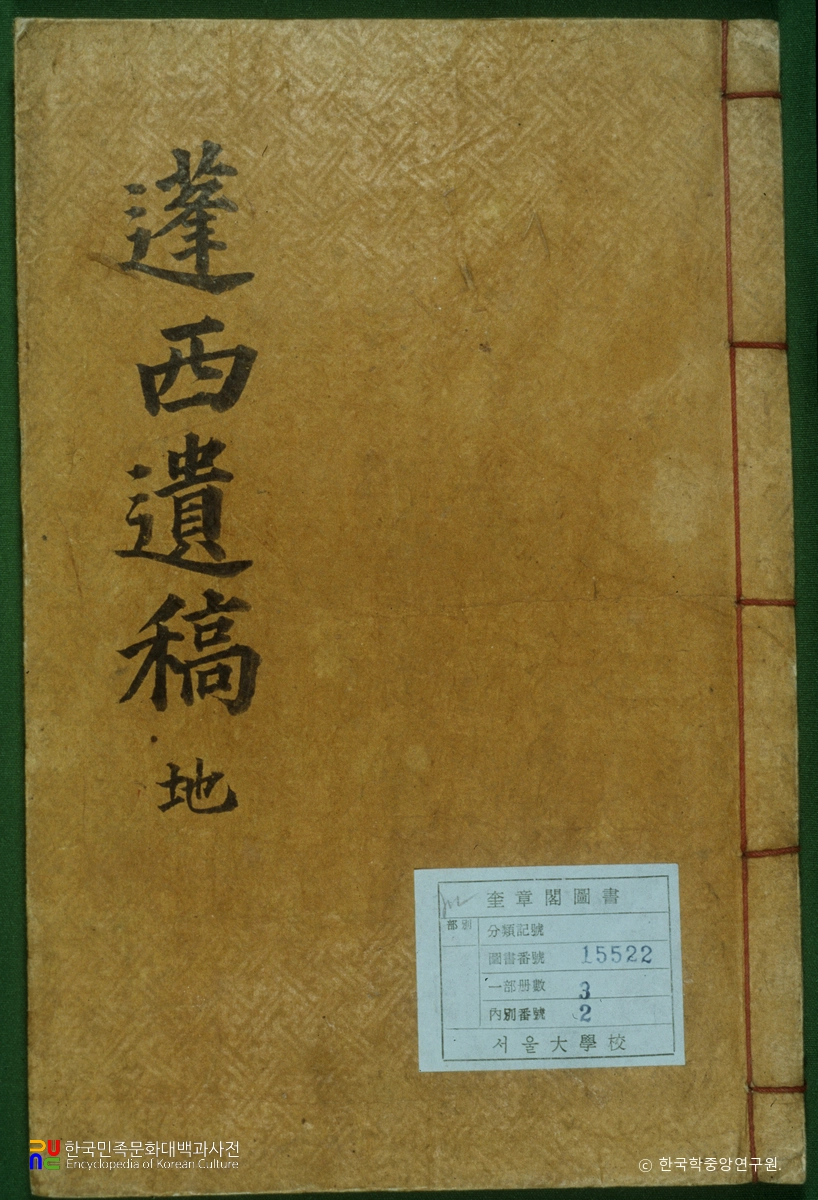 蓬西遺稿 地
奎章閣圖書
部別
分類記號
圖書番號 15522
一部册數 3
內別番號 2
서울大學校
한국민족문화대백과사전
Encyclopedia of Korean Culture
© 한국학중앙연구원